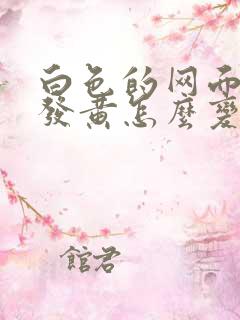 白色的网而
發黃怎麼變
館君